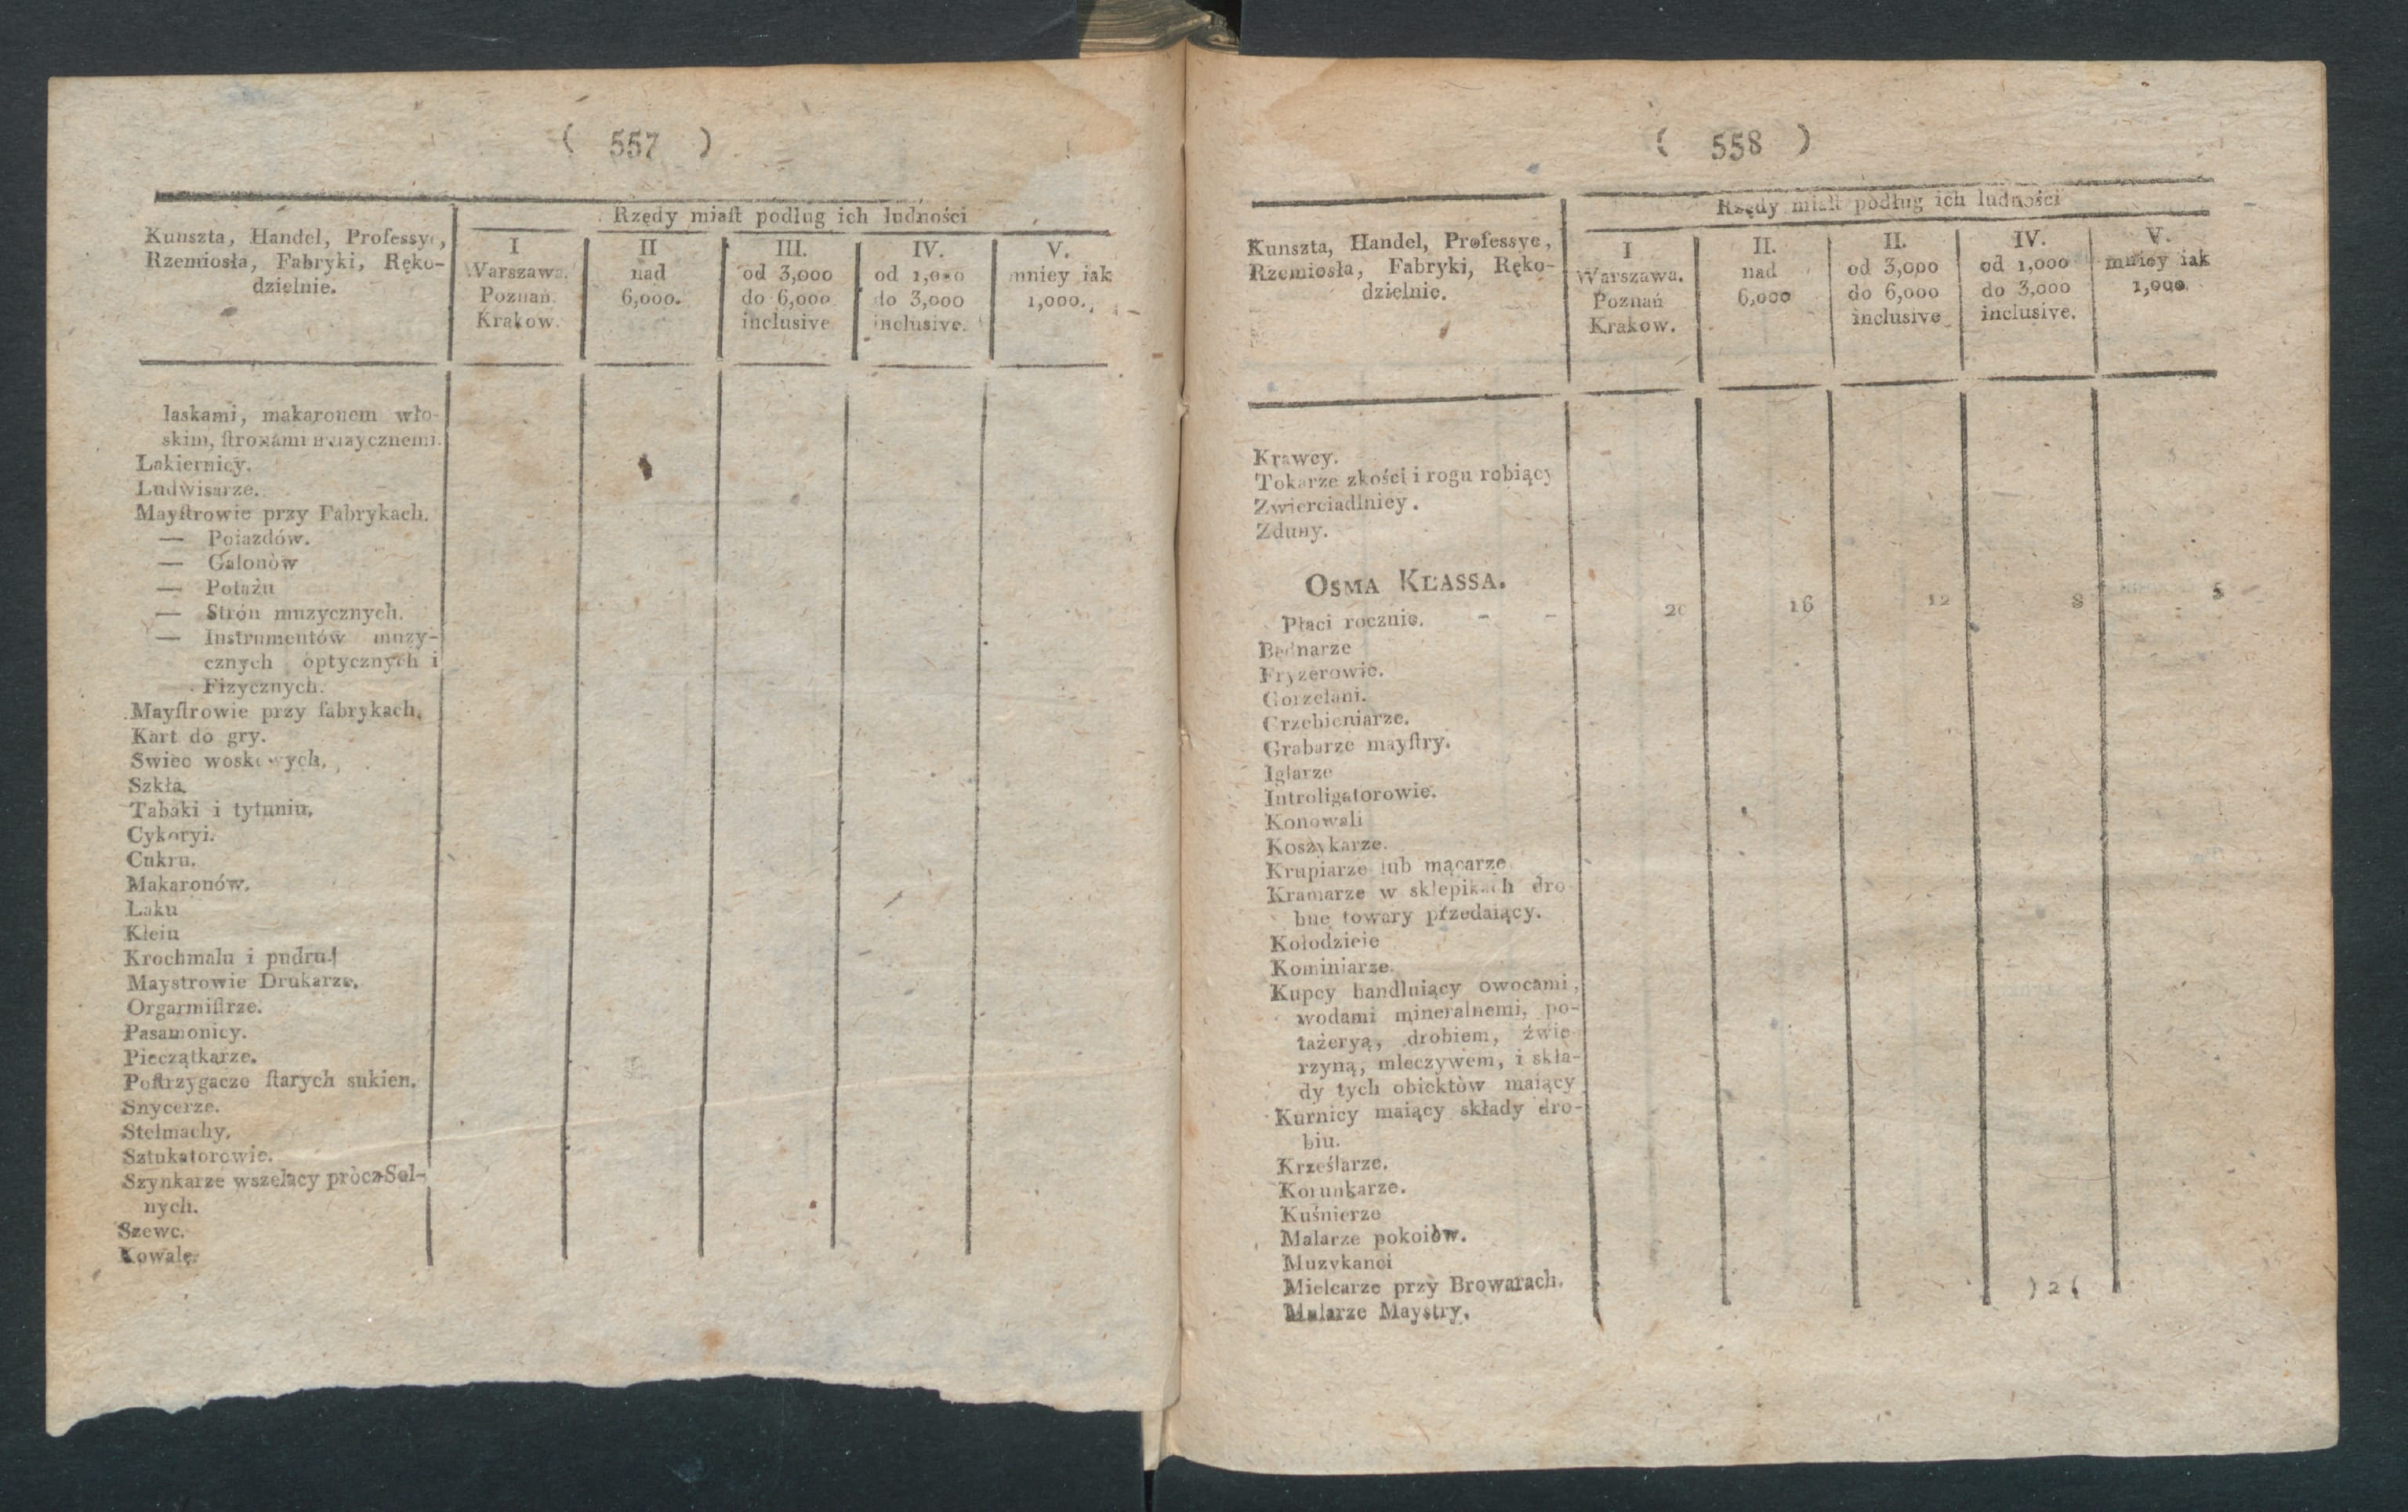 ( 557 )
Rzędy miaſt podług ich ludności
Kunszta, Handel, Professye,
Rzemiosła, Fabryki, Ręko-
dzielnie.
I
Warszawa.
Poznań.
Krakow.
II
nad
6,000.
III.
od 3,000
do 6,000
inclusive
IV.
od 1,000
do 3,000
inclusive.
V.
mniey iak
1,000.
laskami, makaronem wło-
skim, ſtronami muzycznemi.
Lakiernicy.
Ludwisarze.
Mayſtrowie przy Fabrykach.
— Poiazdów.
— Galonòw
— Potażu
— Strón muzycznych.
— Instrumentów muzy-
cznych optycznych i
Fizycznych.
Mayſtrowie przy fabrykach.
Kart do gry.
Swiec woskowych.
Szkła.
Tabaki i tytuniu.
Cykoryi.
Cukru.
Makaronów.
Laku
Kleiu
Krochmalu i pudru.
Maystrowie Drukarze.
Orgarmiſtrze.
Pasamonicy.
Pieczątkarze.
Poſtrzygacze ſtarych sukien.
Snycerze.
Stelmachy.
Sztukatorowie.
Szynkarze wszelacy pròcz Sol-
nych.
Szewc.
Kowale.
( 558 )
Rzędy miaſt podług ich ludności
Kunszta, Handel, Professye,
Rzemiosła, Fabryki, Ręko-
dzielnie.
I
Warszawa.
Poznań
Krakow.
II.
nad
6,000
II.
od 3,000
do 6,000
inclusive
IV.
od 1,000
do 3,000
inclusive.
V.
mniey iak
1,000.
Krawcy.
Tokarze zkości i rogu robiący
Zwierciadlniey.
Zduny.
OSMA KLASSA.
Płaci rocznie. - - 20 16 12 8 5
Bednarze
Fryzerowie.
Gorzelani.
Grzebieniarze.
Grabarze mayſtry.
Iglarze
Introligatorowie.
Konowali
Koszykarze.
Krupiarze lub mączarze
Kramarze w sklepikach dro
bne towary przedaiący.
Kołodzieie
Kominiarze.
Kupcy handluiący owocami,
wodami mineralnemi, po-
tażeryą, drobiem, źwie
rzyną, mleczywem, i skła-
dy tych obiektòw maiący
Kurnicy maiący składy dro-
biu.
Krześlarze.
Korunkarze.
Kuśnierze
Malarze pokoiòw.
Muzykanci
Mielcarze przy Browarach.
Malarze Maystry.
) 2 (